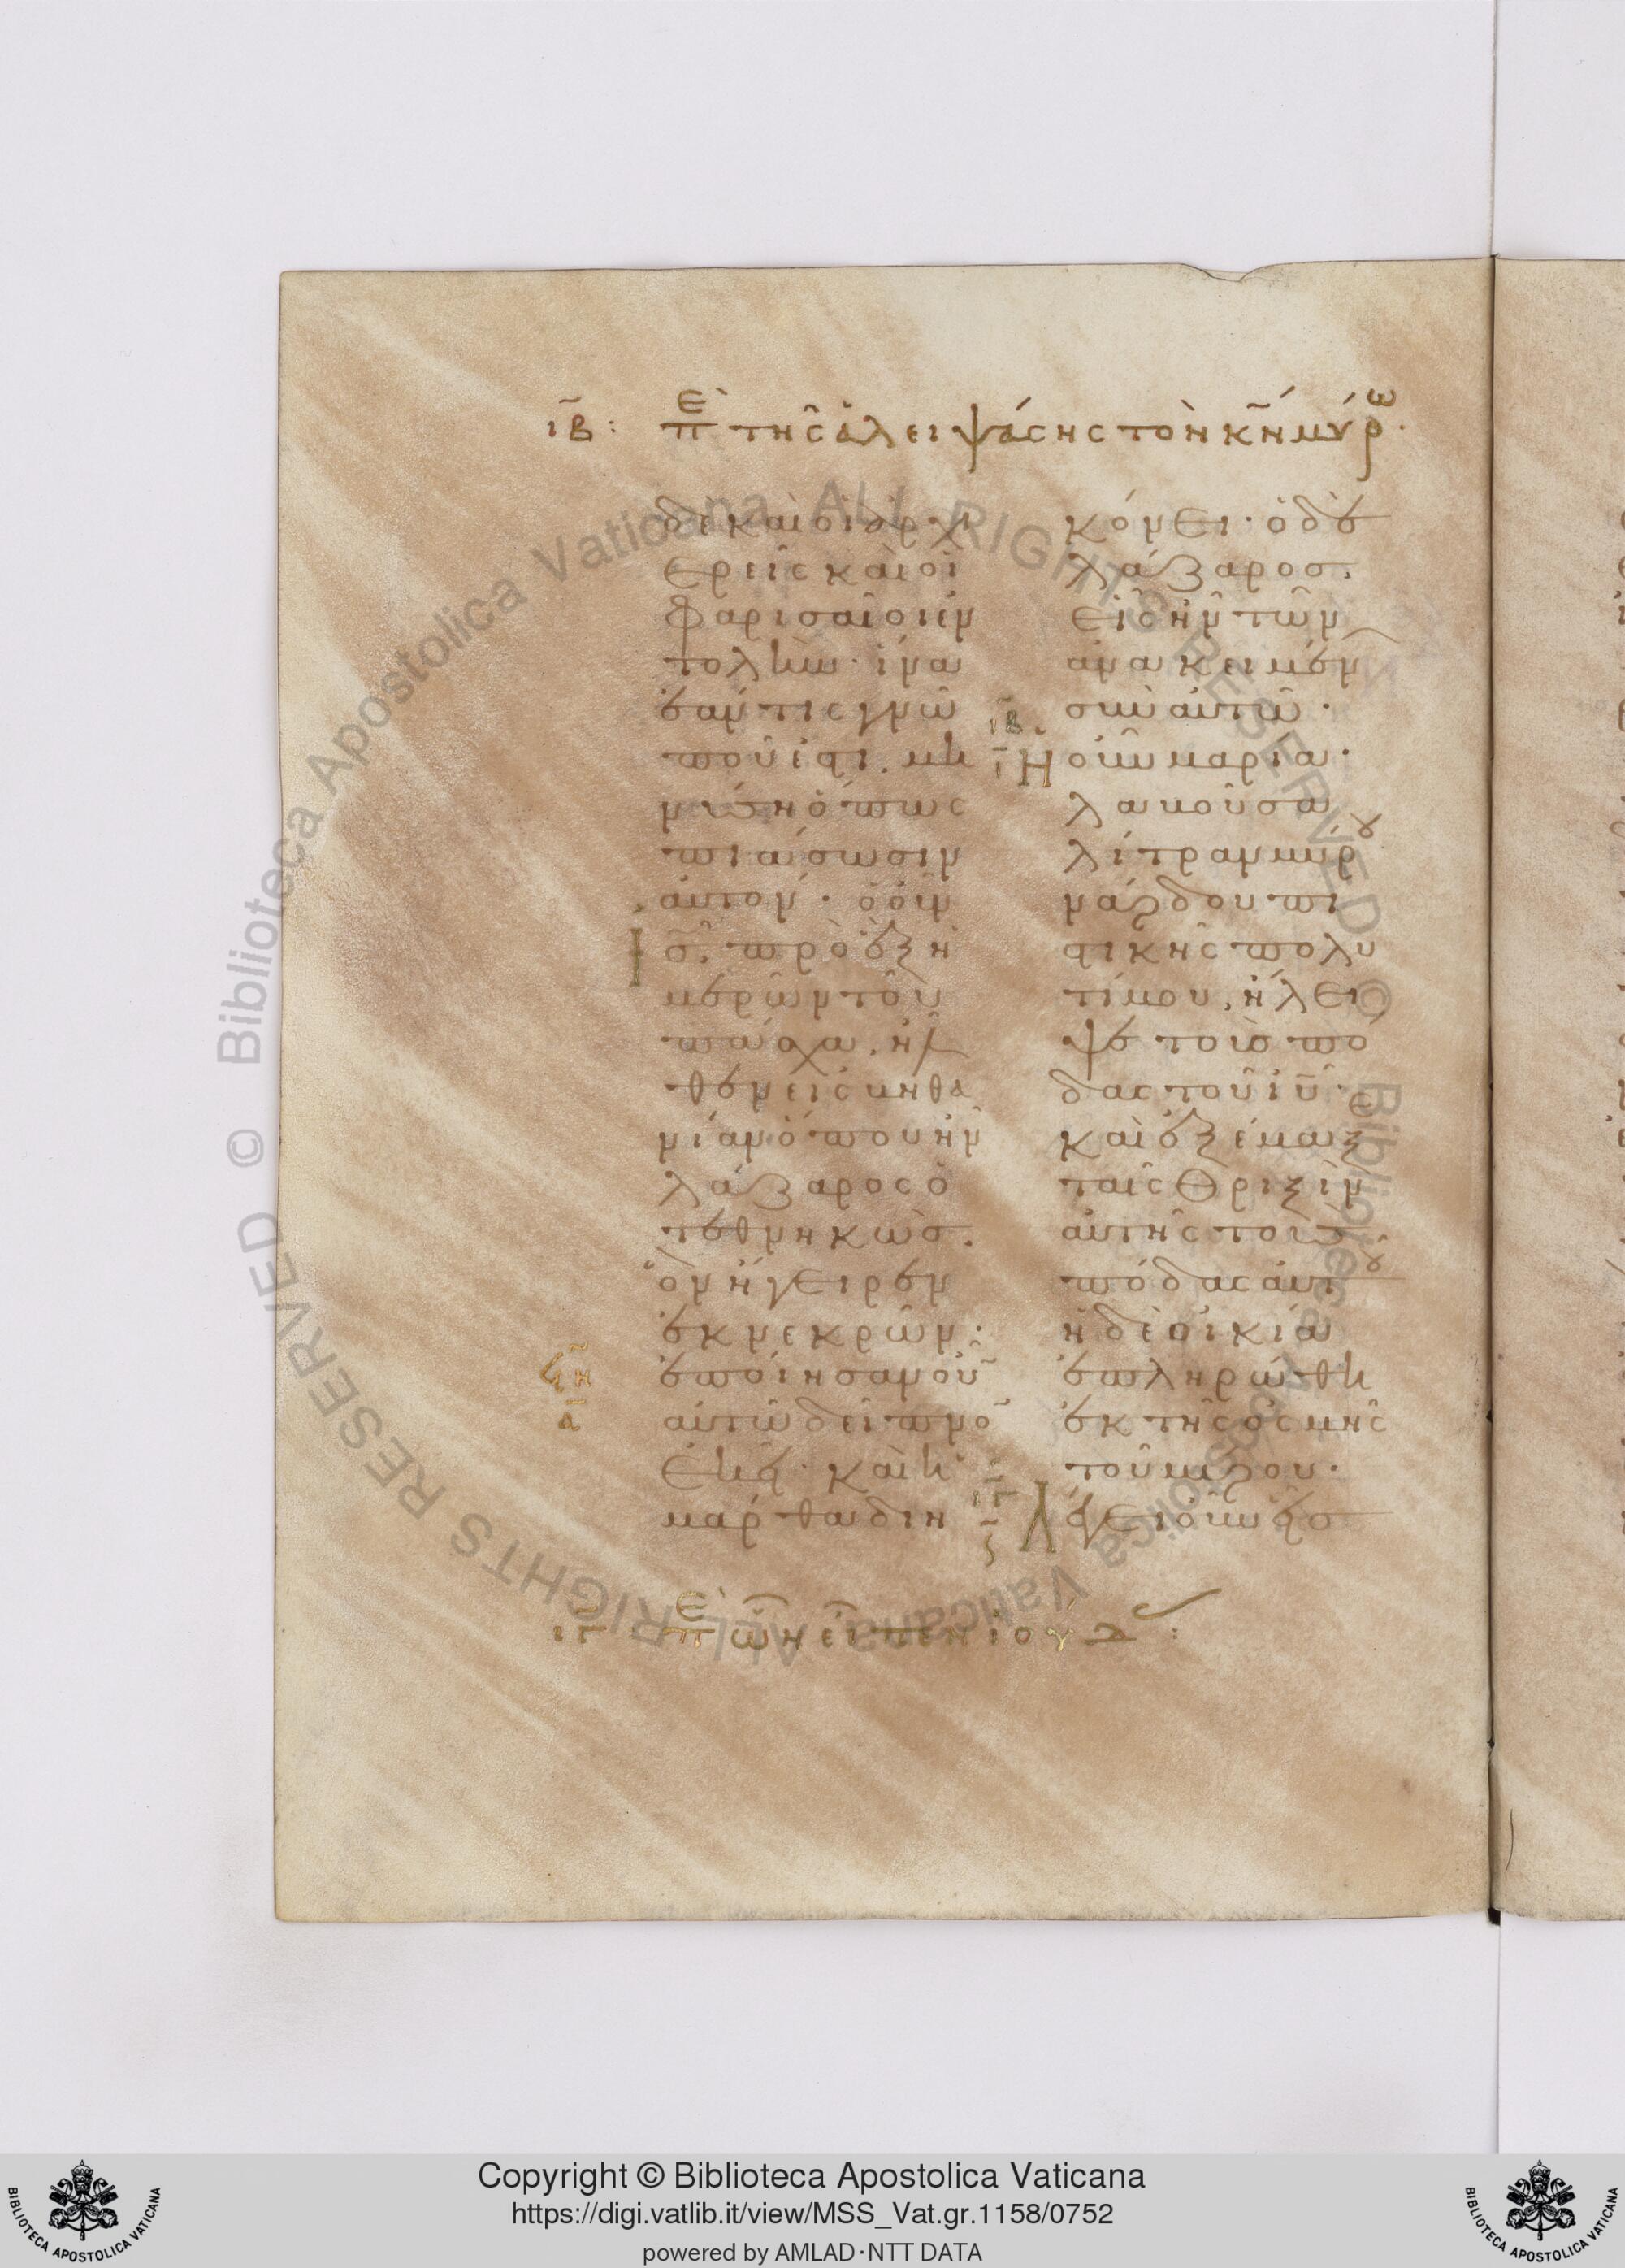 ιβ: πε τῆς ἀλειψάσης τὸν κν μύρω.
δὲ καὶ οἱ ἀρχι
ερεῖς καὶ οἱ
φαρισαῖοι ἐν
τολὴν· ἵνα
ἐάν τις γνῶ
ποῦ ἐστι, μη
νύσῃ ὅπως
πιάσωσιν
αὐτόν· ὁ οὖν
ις πρὸ ἓξ ἡ
μερῶν τοῦ
πάσχα, ἦλ
θεν εἰς βηθα
νίαν ὅπου ἦν
λάζαρος ὁ
τεθνηκώς.
ὃν ἤγειρεν
ἐκ νεκρῶν·
ϟη
ἐποίησαν οὖ
α
αὐτῶ δεῖπνο
ἐκεῖ· καὶ ἡ
μάρθα διη
κόνει· ὁ δὲ
λάζαρος
εἷς ἦν τῶν
ἀνακειμένων
σὺν αὐτῶ·
ιβ
ι
Ἡ οὖν μαρία·
λαβοῦσα
λίτραν μύρου
νάρδου πι
στικῆς πολυ
τίμου, ἤλει
ψε τοὺς πό
δας τοῦ ιυ·
καὶ ἐξέμαξε
ταῖς θριξὶν
αὐτῆς τοὺς
πόδας αὐτοῦ
ἡ δὲ οἰκία
ἐπληρώθη
ἐκ τῆς ὀσμῆς
τοῦ μύρου·
ιγ
Λέγει οὖν εἷς
ιγ πε ὧν εἶπεν ἰούδας:
© Biblioteca Apostolica Vaticana ALL RIGHTS RESERVED © Biblioteca Apostolica Vaticana ALL RIGHTS RESERVED
Copyright © Biblioteca Apostolica Vaticana
https://digi.vatlib.it/view/MSS_Vat.gr.1158/0752
powered by AMLAD·NTT DATA
BIBLIOTECA APOSTOLICA VATICANA
BIBLIOTECA APOSTOLICA VATICANA